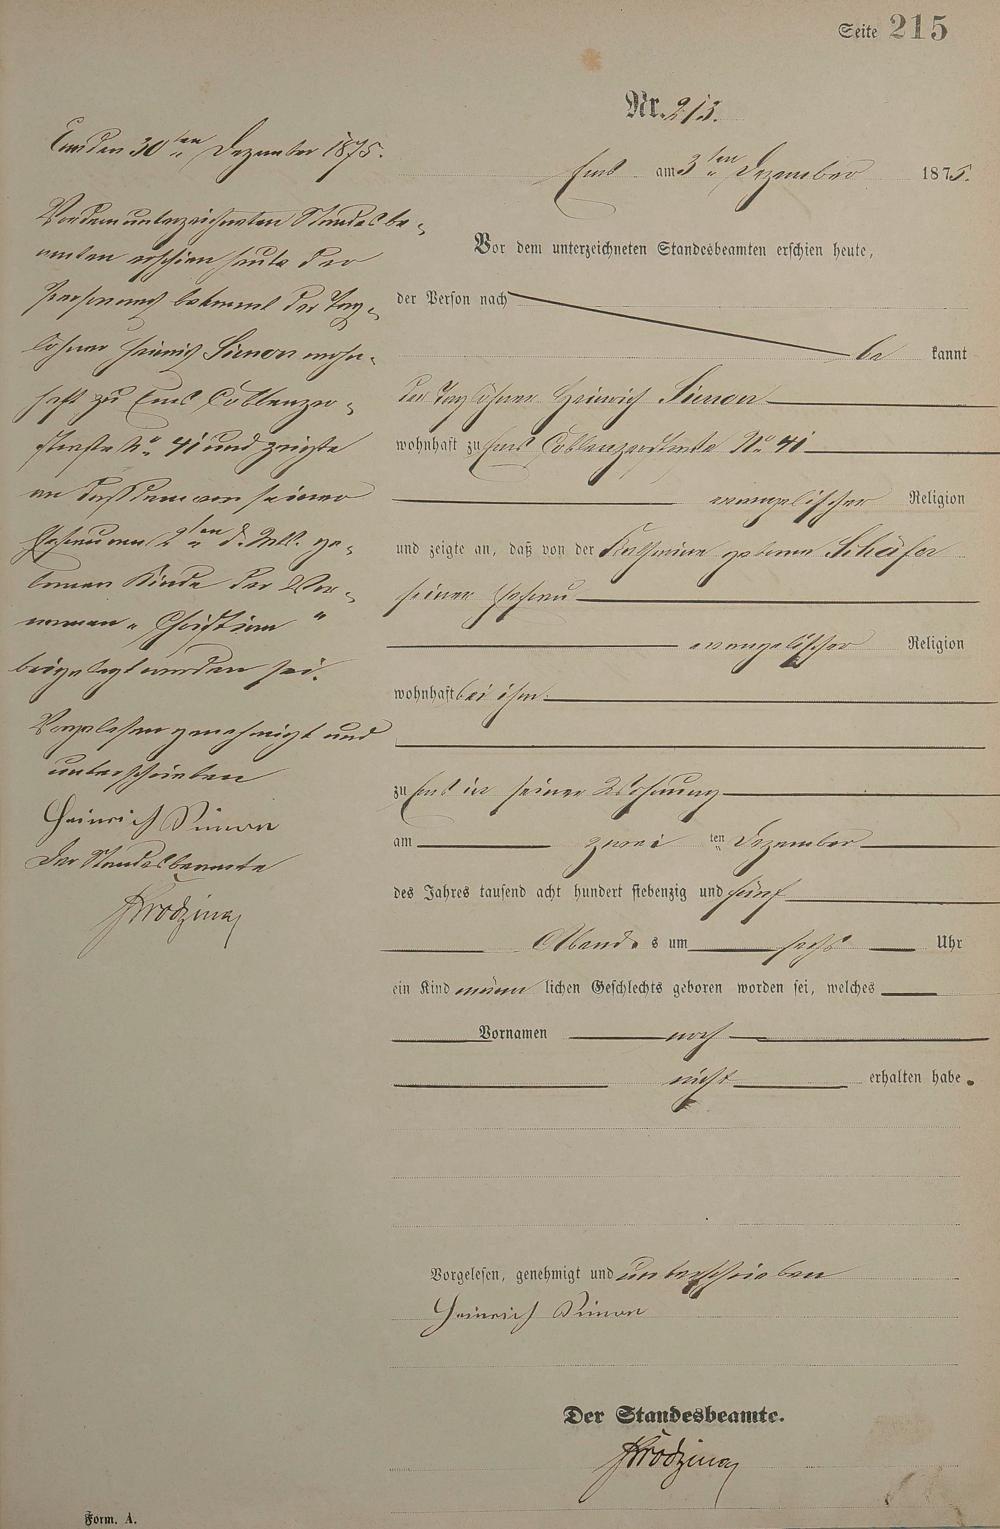 Seite 215
Nr. 213.
Ems den 30ten Dezember 1875.
Vor dem unterzeichneten Standesbe-
amten erschien heute der
Person nach bekannt der Tag-
löhner Heinrich Simon wohn-
haft zu Ems Coblenzer-
straße No 41 und zeigte
an daß dem von seiner
Ehefrau am 2ten d. Mts. ge-
bornen Kinde der Vor-
namen „Christian"
beigelegt worden sei.
Vorgelesen genehmigt und
unterschrieben
Heinrich Simon
Der Standesbeamte
Ems am 3ten Dezember 1875.
Vor dem unterzeichneten Standesbeamten erschien heute,
der Person nach
be kannt
der Taglöhner Heinrich Simon
wohnhaft zu Ems Coblenzerstraße No 41
evangelischer Religion
und zeigte an, daß von der Katharine geborne Schäfer
seiner Ehefrau
evangelischer Religion
wohnhaft bei ihm.
zu Ems in seiner Wohnung
am zwei ten Dezember
des Jahres tausend acht hundert siebenzig und fünf
Abends um sechs Uhr
ein Kind männlichen Geschlechts geboren worden sei, welches
Vornamen noch
nicht erhalten habe.
Vorgelesen, genehmigt und unterschrieben
Heinrich Simon
Der Standesbeamte.
Form. A.